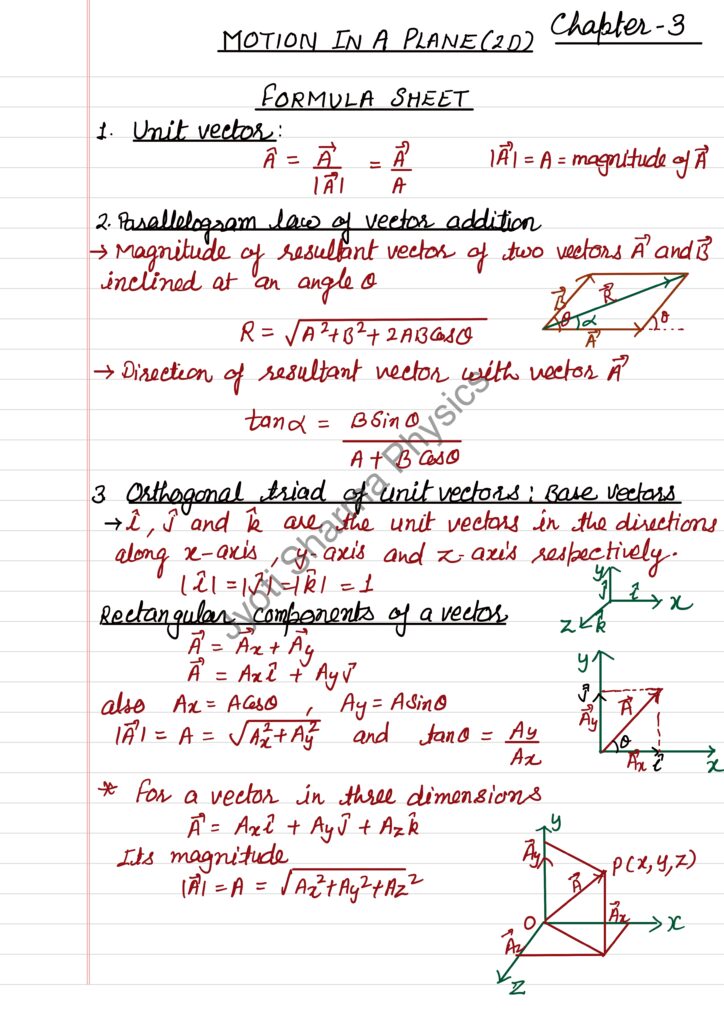 MOTION IN A PLANE(2D) Chapter-3
FORMULA SHEET
1. Unit vector:
Â = A⃗/|A⃗| = A⃗/A |A⃗| = A = magnitude of A⃗
2. Parallelogram law of vector addition
→ Magnitude of resultant vector of two vectors A⃗ and B⃗
inclined at an angle θ
B⃗ R⃗ θ α A⃗ θ
R = √(A²+B²+2ABCosθ)
→ Direction of resultant vector with vector A⃗
tanα = BSinθ/(A + BCosθ)
3 Orthogonal triad of unit vectors: Base vectors
→ î, ĵ and k̂ are the unit vectors in the directions
along x-axis, y-axis and z-axis respectively.
|î| = |ĵ| = |k̂| = 1
y ĵ î x z k̂
Rectangular components of a vector
A⃗ = A⃗x + A⃗y
A⃗ = Axî + Ayĵ
also Ax = ACosθ , Ay = ASinθ
|A⃗| = A = √(Ax²+Ay²) and tanθ = Ay/Ax
y ĵ A⃗y A⃗ θ A⃗x î x
* For a vector in three dimensions
A⃗ = Axî + Ayĵ + Azk̂
Its magnitude
|A⃗| = A = √(Ax²+Ay²+Az²)
y A⃗y P(x,y,z) A⃗ O A⃗x x A⃗z z
Jyoti Sharma Physics